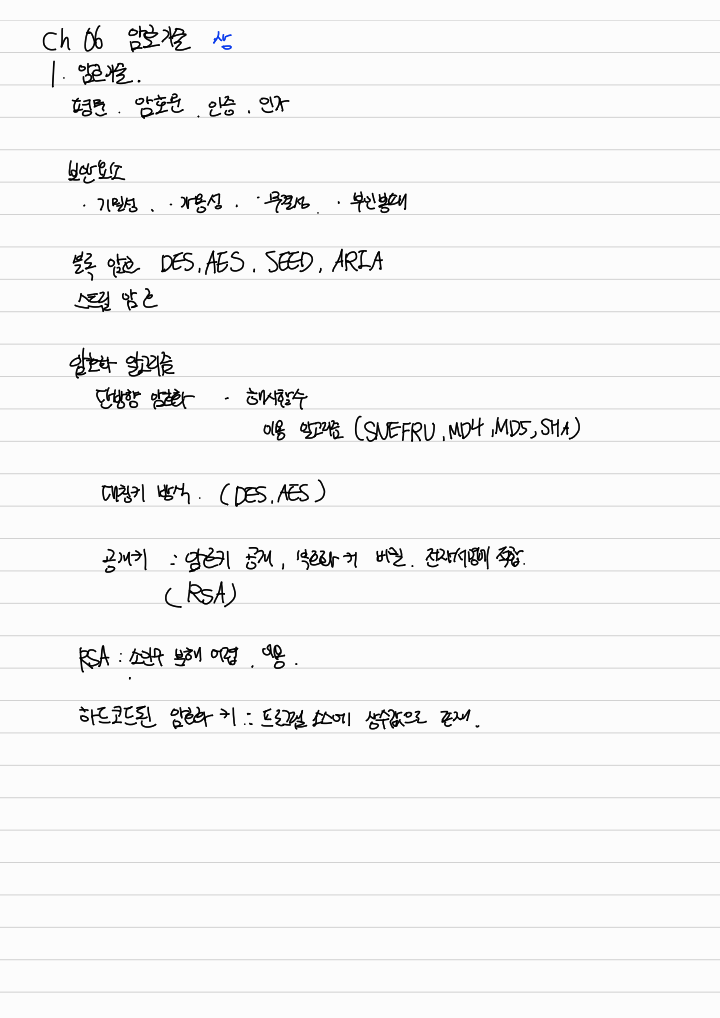 Ch 06 암호기술 상
1. 암호기술.
평문. 암호문. 인증. 인자
보안요소
· 기밀성. · 가용성. · 무결성. · 부인봉쇄
블록 암호 DES, AES, SEED, ARIA
스트림 암호
암호화 알고리즘
단방향 암호화 · 해시함수
이용 알고리즘 (SNEFRU, MD4, MD5, SHA)
대칭키 방식. (DES, AES)
공개키 : 암호키 공개, 복호화 키 비밀. 전자서명에 적합.
(RSA)
RSA : 소인수 분해 어렵. 이용.
하드코드된 암호화 키 : 프로그램 소스에 상수값으로 존재.